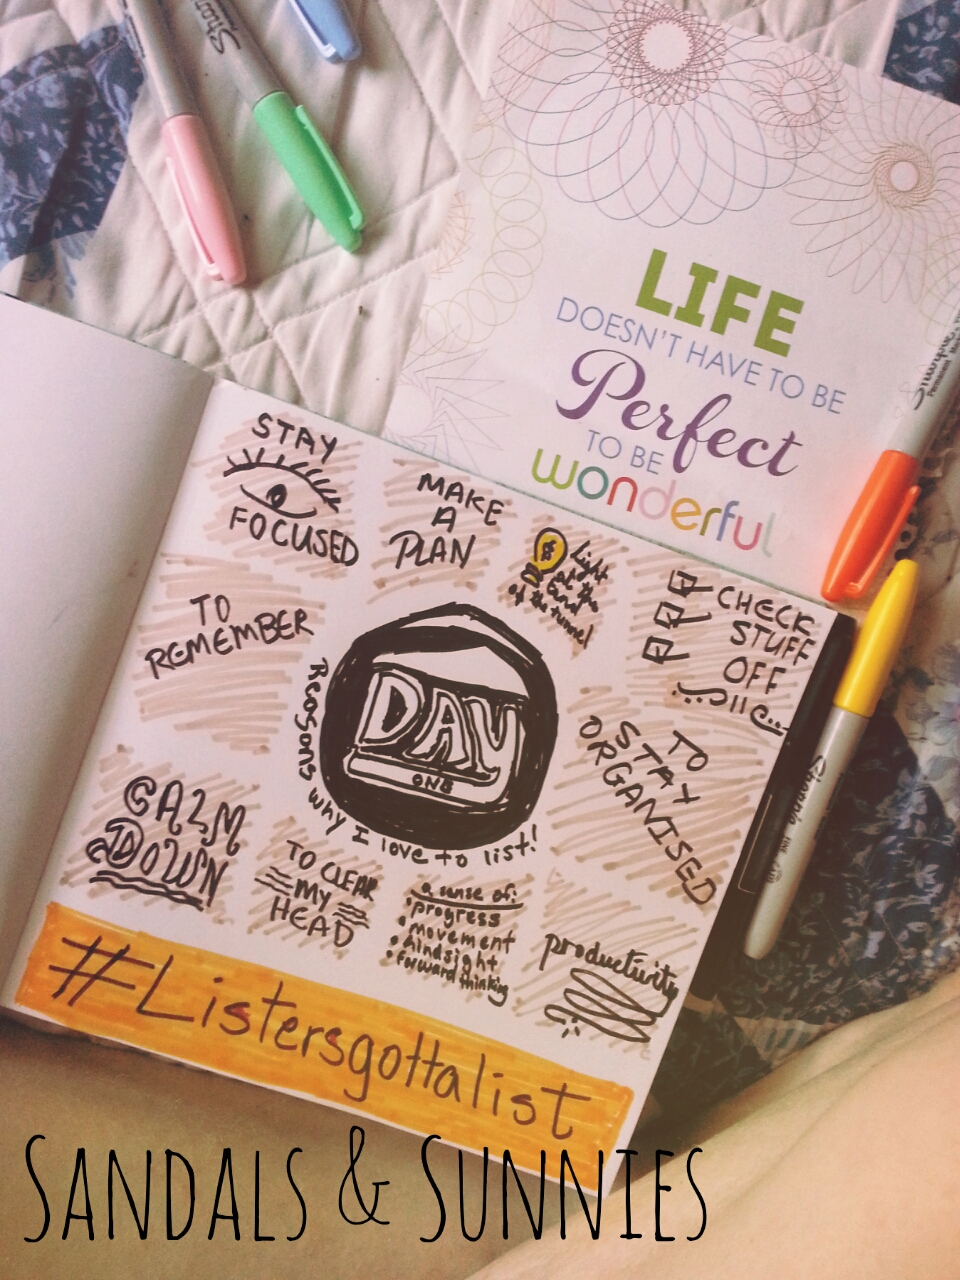 Sharpie
LIFE
DOESN'T HAVE TO BE
Perfect
TO BE
wonderful
Sharpie
STAY
FOCUSED
MAKE
A
PLAN
$
Light
at the
End
of the tunnel
CHECK
STUFF
OFF
TO
REMEMBER
DAY
ONE
Reasons why I love to list!
TO
STAY
ORGANISED
CALM
DOWN
TO CLEAR
MY
HEAD
a sense of:
• progress
• movement
• hindsight
• forward thinking
productivity
Sharpie
#Listersgottalist
SANDALS & SUNNIES